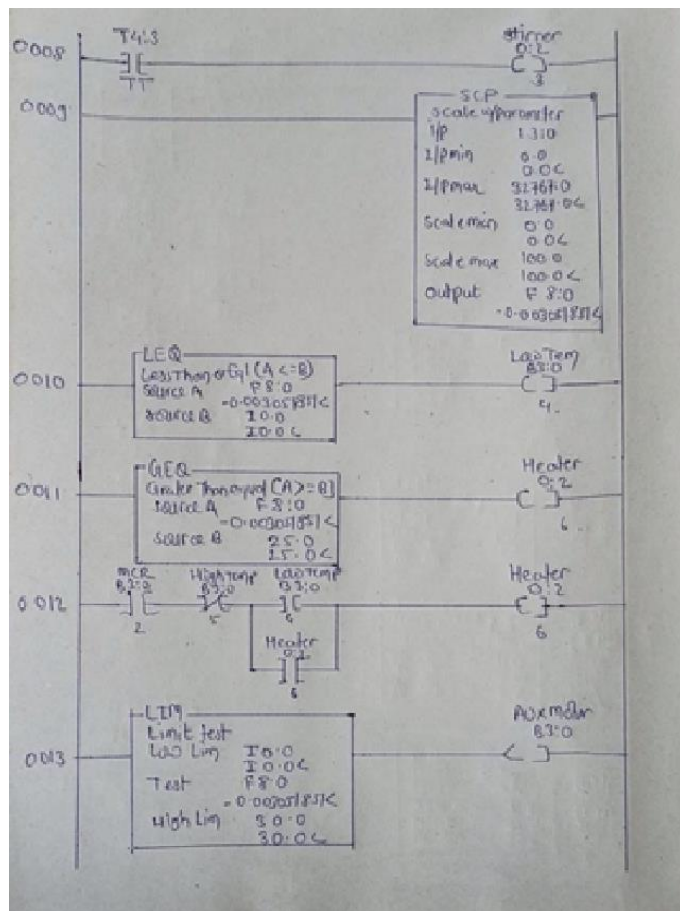 T4:3
stirrer
O:2
0008
TT
3
SCP
0009
Scale w/parameter
I/P 1.3:0
I/Pmin 0.0
0.0<
I/Pmax 32767.0
32767.0<
Scale min 0.0
0.0<
Scale max 100.0
100.0<
output F 8:0
-0.003051851<
LEQ
0010
Less Than or Eql (A <=B)
Source A F8:0
-0.003051851<
Source B 10.0
10.0<
Low Tem
B3:0
4
GEQ
0011
Grater Than or equal (A>=B)
Source A F8:0
-0.003051851<
Source B 25.0
25.0<
Heater
O:2
6
0012
MCR
B3:0
2
HighTemp
B3:0
5
Low Temp
B3:0
Heater
Heater
O:2
6
LIM
0013
Limit test
Low Lim 10.0
10.0<
Test F8:0
-0.003051851<
High Lim 30.0
30.0<
Aux motor
B3:0